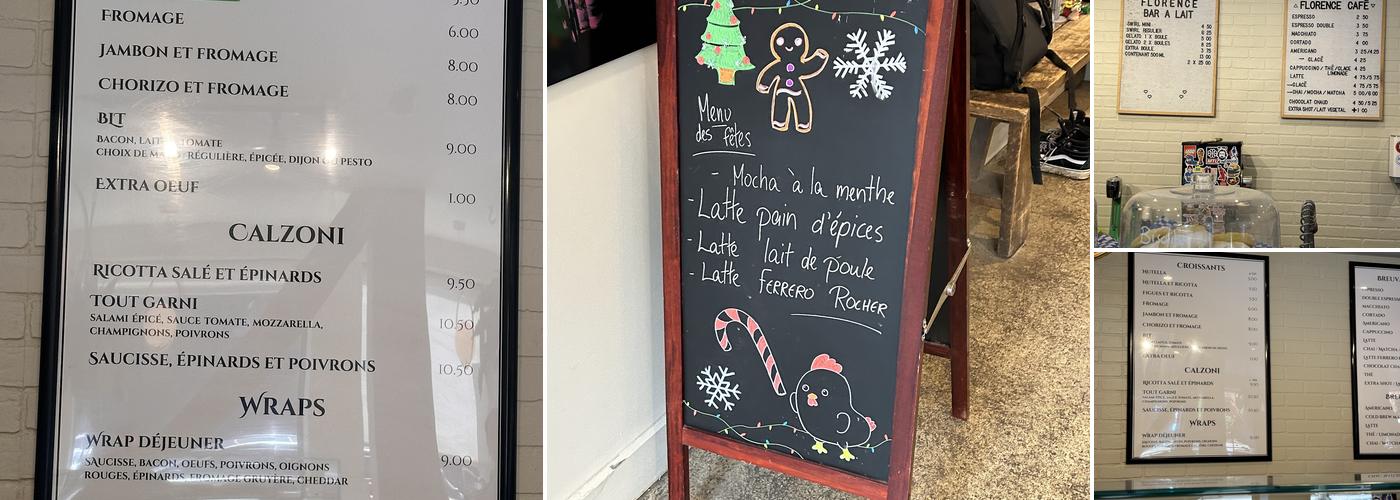 FROMAGE
6.00
JAMBON ET FROMAGE
8.00
CHORIZO ET FROMAGE
8.00
BLT
BACON, TOMATE
9.00
CHOIX DE RÉGULIÈRE, ÉPICÉE, DIJON PESTO
EXTRA OEUF
1.00
CALZONI
RICOTTA SALÉ ET ÉPINARDS
9.50
TOUT GARNI
SALAMI ÉPICÉ, SAUCE TOMATE, MOZZARELLA,
10.50
CHAMPIGNONS, POIVRONS
SAUCISSE, ÉPINARDS ET POIVRONS
10.50
WRAPS
WRAP DÉJEUNER
9.00
SAUCISSE, BACON, OEUFS, POIVRONS, OIGNONS
ROUGES, ÉPINARDS, FROMAGE GRUYÈRE, CHEDDAR
Menu
des fêtes
- Mocha à la menthe
- Latte pain d'épices
- Latte lait de poule
- Latte FERRERO ROCHER
FLORENCE
BAR A LAIT
SWIRL MINI 4 50
SWIRL REGULIER 6 25
GELATO 1 X BOULE 5 00
GELATO 2 X BOULES 8 25
EXTRA BOULE 3 75
CONTENANT 500ML 13 00
2 X 25 00
FLORENCE CAFÉ
ESPRESSO 2 50
ESPRESSO DOUBLE 3 50
MACCHIATO 3 75
CORTADO 4 00
AMERICANO 3 25/4 25
GLACÉ 4 25
CAPPUCCINO/THÉ/GLACÉ 4 25
LIMONADE
LATTE 4 75/5 75
GLACÉ 4 75/5 75
CHAI/MOCHA/MATCHA 5 00/6 00
CHOCOLAT CHAUD 4 50/5 25
EXTRA SHOT/LAIT VEGETAL +1 00
CROISSANTS
NUTELLA
NUTELLA ET RICOTTA
FIGUES ET RICOTTA
FROMAGE
JAMBON ET FROMAGE
CHORIZO ET FROMAGE
BLT
EXTRA OEUF
CALZONI
RICOTTA SALÉ ET ÉPINARDS
TOUT GARNI
SALAMI ÉPICÉ, SAUCE TOMATE, MOZZARELLA,
CHAMPIGNONS, POIVRONS
SAUCISSE, ÉPINARDS ET POIVRONS
WRAPS
WRAP DÉJEUNER
SAUCISSE, BACON, OEUFS, POIVRONS, OIGNONS
ROUGES, ÉPINARDS, FROMAGE GRUYÈRE, CHEDDAR
BREUV
ESPRESSO
DOUBLE ESPRES
MACCHIATO
CORTADO
AMERICANO
CAPPUCCINO
LATTE
CHAI / MATCHA
LATTE FERRERO
CHOCOLAT CHA
THÉ
EXTRA SHOT / LA
BRE
AMERICAN
COLD BREW
LATTE
THÉ / LIMONA
CHAI / MATCH